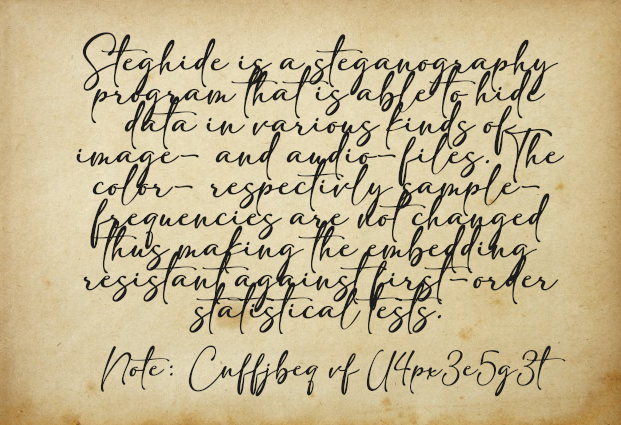 Steghide is a steganography
program that is able to hide
data in various kinds of
image- and audio-files. The
color- respectivly sample-
frequencies are not changed
thus making the embedding
resistant against first-order
statistical tests.
Note: Cnffjbeq vf U4px3e5g3t